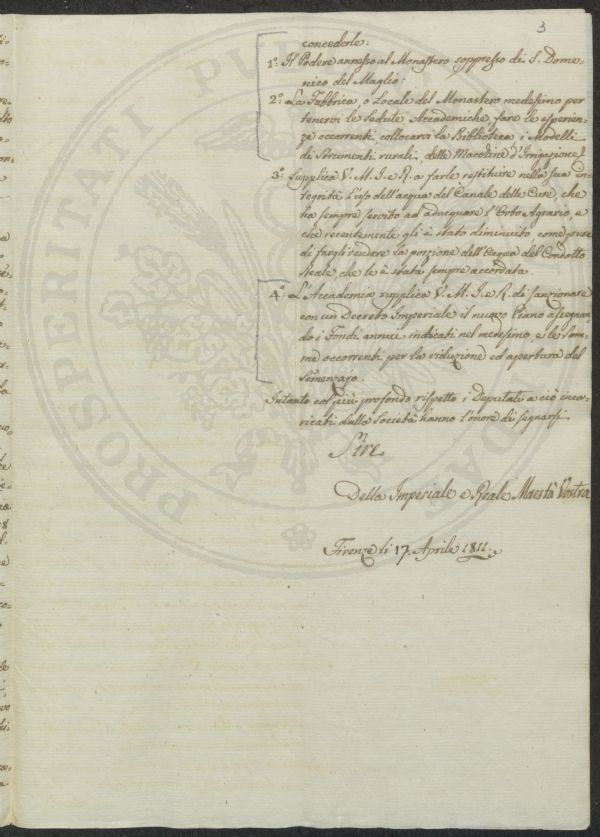 3
concederle:
1.° Il Podere annesso al Monastero soppresso di S. Dome-
nico del Maglio:
2.° La Fabbrica, o Locale del Monastero medesimo per
tenervi le Sedute Accademiche, fare le esperien-
ze occorrenti, collocarvi la Biblioteca, i Modelli
di Strumenti rurali, delle Macchine d'Irrigazione
3.° Supplica V. M. I. e R. a farle restituire nella sua in-
tegrità l'uso dell'acqua del Canale delle Cure, che
ha sempre servito ad adacquare l'Orto Agrario, e
che recentemente gli è stato diminuito come pure
di fargli rendere la porzione dell'Acqua del Condotto
Reale, che le è stata sempre accordata.
4.° L'Accademia supplica V. M. I. e R. di sanzionare
con un Decreto Imperiale il nuovo Piano assegnan-
do i Fondi annui indicati nel medesimo e le Som-
me occorrenti per la riduzione ed apertura del
Semenzajo.
Intanto col più profondo rispetto i Deputati a ciò inca-
ricati dalla Società hanno l'onore di segnarsi
Sire
Della Imperiale e Reale Maestà Vostra
Firenze li 17. Aprile 1811.
PROSPERITATI PUBLICAE